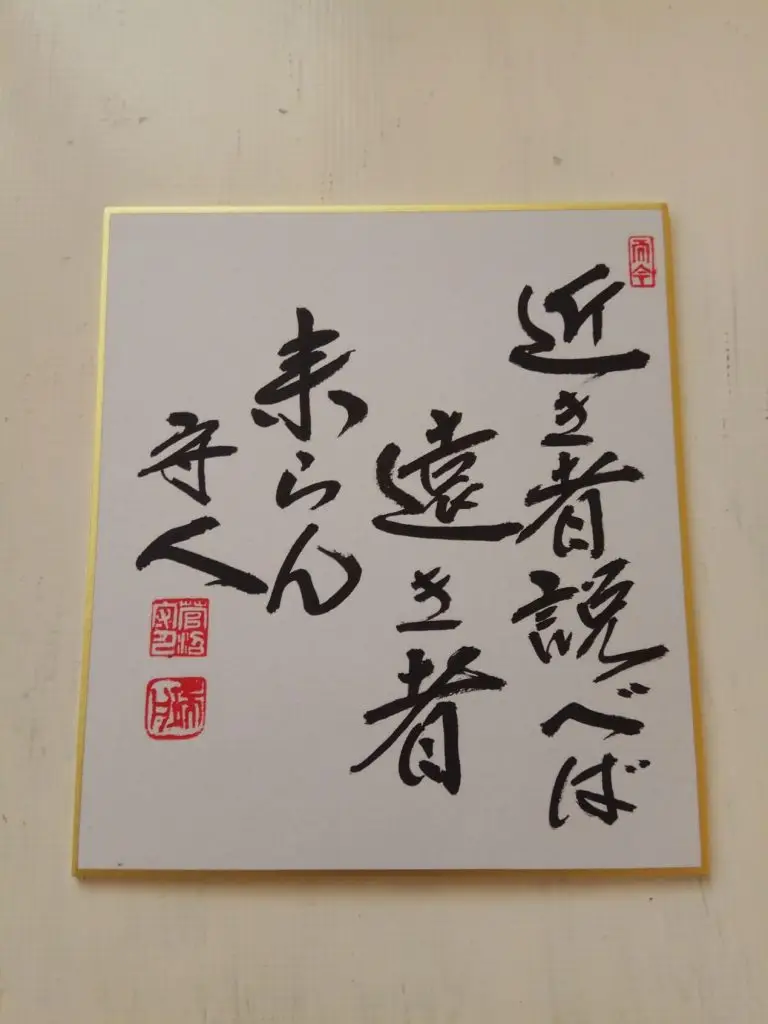 近き者説べば
遠き者
来らん
守人
而今